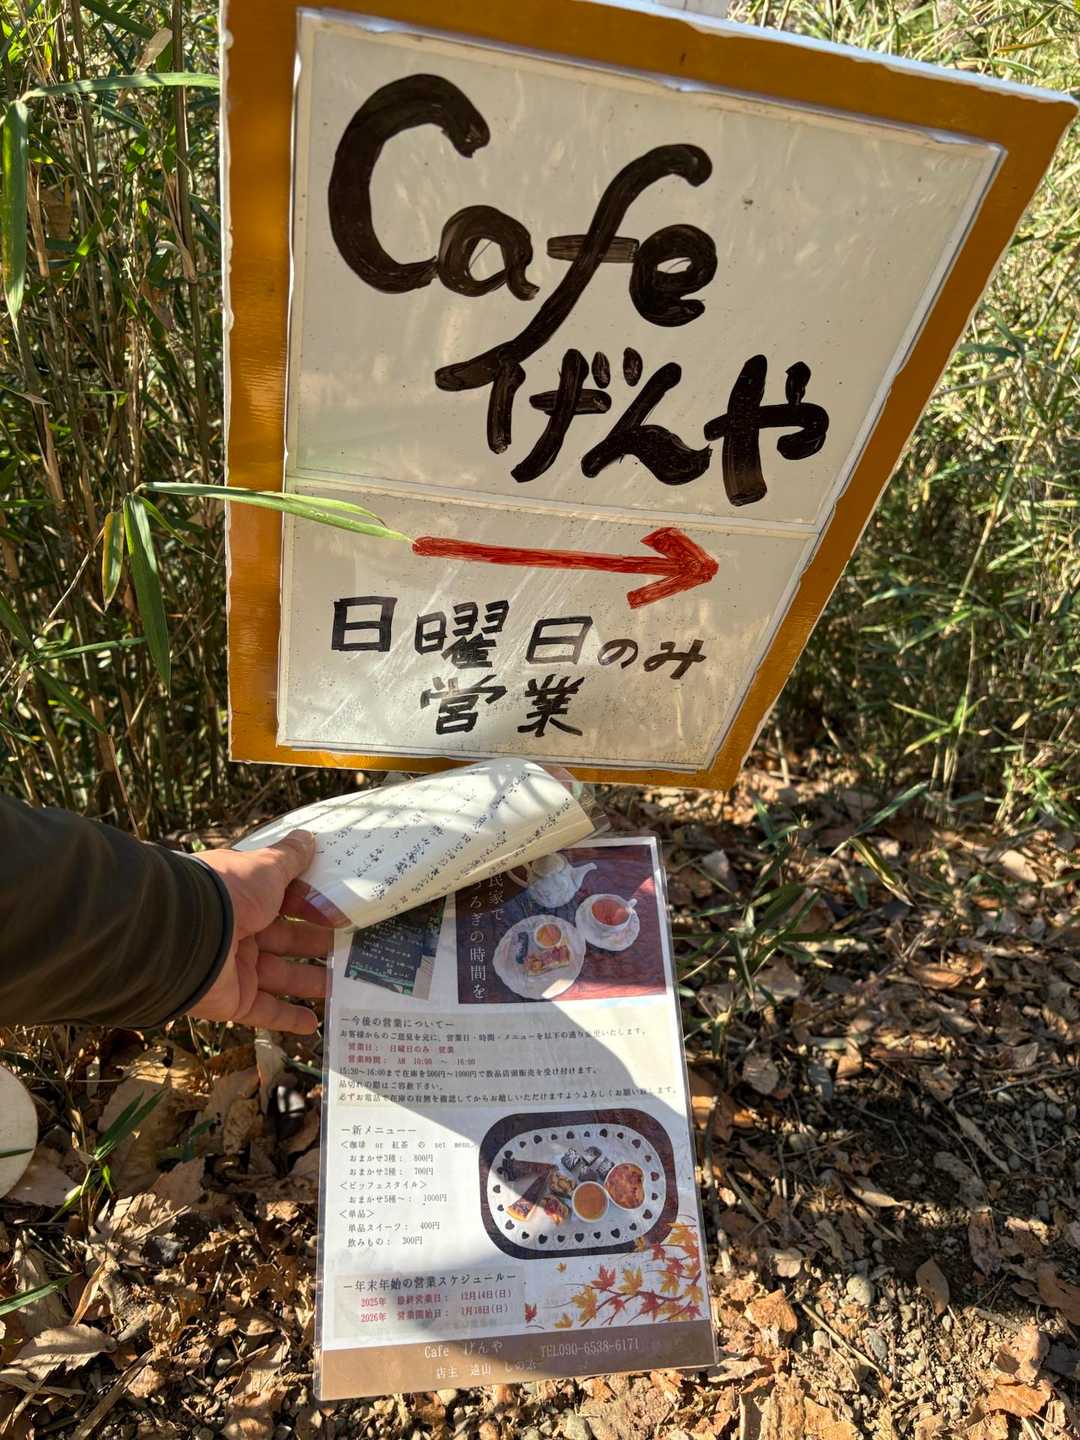 Cafe
げんや
日曜日のみ
営業
民家で
つろぎの時間を
―今後の営業について―
お客様からのご意見を元に、営業日・時間・メニューを以下の通り変更いたします。
営業日： 日曜日のみ 営業
営業時間： AM 10:00 ～ 16:00
15:30~16:00まで在庫を500円～1000円で数品店頭販売を受け付けます。
品切れの際はご容赦下さい。
必ずお電話で在庫の有無を確認してからお越しいただけますようよろしくお願い致します。
―新メニュー―
<珈琲 or 紅茶 の set menu>
おまかせ3種： 800円
おまかせ2種： 700円
<ビッフェスタイル>
おまかせ5種～： 1000円
<単品>
単品スイーツ： 400円
飲みもの： 300円
―年末年始の営業スケジュール―
2025年 最終営業日： 12月14日(日)
2026年 営業開始日： 1月18日(日)
Cafe げんや TEL090-6538-6171
店主 遠山 しのぶ